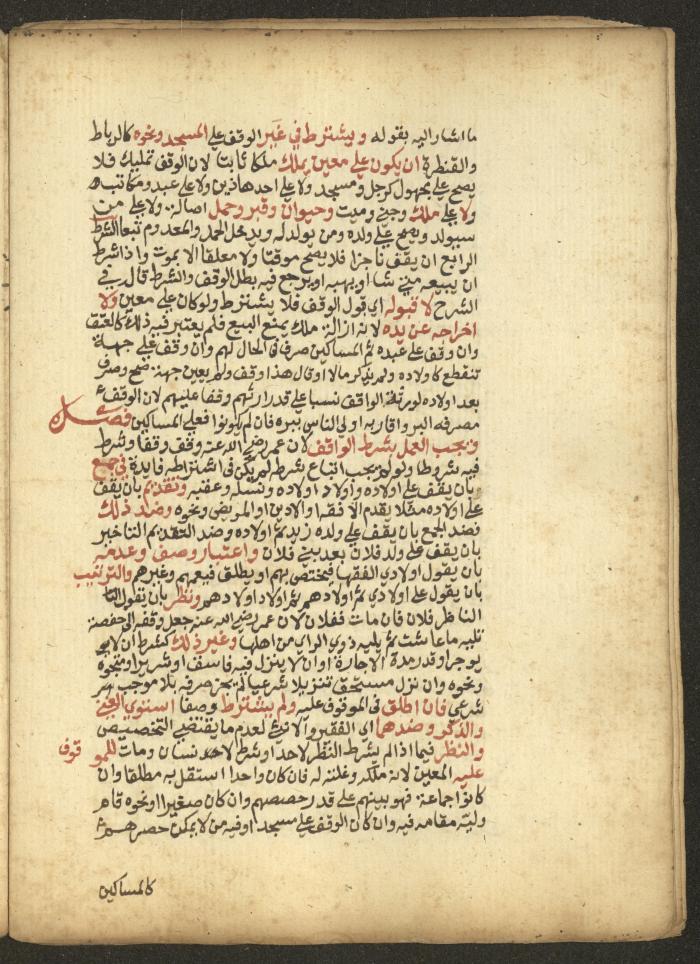 ما اشار اليه بقوله ويشترط في غير الوقف على المسجد ونحوه كالرباط
والقنطرة ان يكون على معين يملك ملكا ثابتا لان الوقف تمليك فلا
يصح على مجهول كرجل ومسجد ولا على احد هاذين ولا على عبد ومكاتب
ولا على ملك وجني وميت وحيوان وقبر وحمل اصالة ولا على من
سيولد ويصح على ولده ومن يولد له ويدخل الحمل والمعدوم تبعا الشرط
الرابع ان يقف ناجزا فلا يصح موقتا ولا معلقا الا بموت واذا شرط
ان يبيعه متى شا او يهبه او يرجع فيه بطل الوقف والشرط قال في
الشرح لا قبوله اي قول الوقف فلا يشترط ولو كان على معين ولا
اخراجه عن يده لانه ازالة ملك يمنع البيع فلم يعتبر فيه ذلك كالعتق
وان وقف على عبده ثم المساكين صرف في الحال لهم وان وقف على جهة
تنقطع كاولاده ولم يذكر مالا او قال هذا وقف ولم يعين جهة صح وصرف
بعد اولاده لورثة الواقف نسبا على قدر ارثهم وقفا عليهم لان الوقف
مصرفه البر واقاربه اولى الناس ببره فان لم يكونوا فعلى المساكين فصل
ويجب العمل بشرط الواقف لان عمر رضي الله عنه وقف وقفا وشرط
فيه شروطا ولو لم يجب اتباع شرطه لم يكن في اشتراطه فايدة في جمع
بان يقف على اولاده واولاد اولاده ونسله وعقبه وتقديم بان يقف
على اولاده مثلا يقدم الافقه او الادين او المريض ونحوه وضد ذلك
فضد الجمع بان يقف على ولده زيد ثم اولاده وضد التقديم التاخير
بان يقف على ولد فلان بعد بني فلان واعتبار وصف وعدمه
بان يقول اولادي الفقها فيختص بهم او يطلق فيعمهم وغيرهم والترتيب
بان يقول على اولادي ثم اولادهم ثم اولاد اولادهم ونظر بان يقول
الناظر فلان فان مات ففلان لان عمر رضي الله عنه جعل وقفه الى حفصة
تليه ما عاشت ثم يليه ذوي الراي من اهلها وغير ذلك كشرط ان لا
يوجر او قدر مدة الاجارة او ان لا ينزل فيه فاسق او شرير او متجوه
ونحوه وان نزل مستحق تنزيلا شرعيا لم يجز صرفه بلا موجب
شرعي فان اطلق في الموقوف عليه ولم يشترط وصفا استوى الغني
والذكر وضدهما اي الفقير والانثى لعدم ما يقتضي التخصيص
والنظر فيما اذا لم يشرط النظر لاحد او شرط لاحد نسان ومات للموقوف
عليه المعين لانه ملكه وغلته له فان كان واحدا استقل به مطلقا وان
كانوا جماعة فهو بينهم على قدر حصصهم وان كان صغيرا او نحوه قام
وليه مقامه فيه وان كان الوقف على مسجد او فيه من لا يمكن حصرهم
كالمساكين